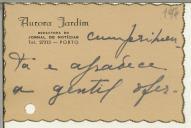 Aurora Jardim
REDACTORA DO
JORNAL DE NOTÍCIAS
PORTO
cumprimen-
ta e agradece
a gentil ofer-